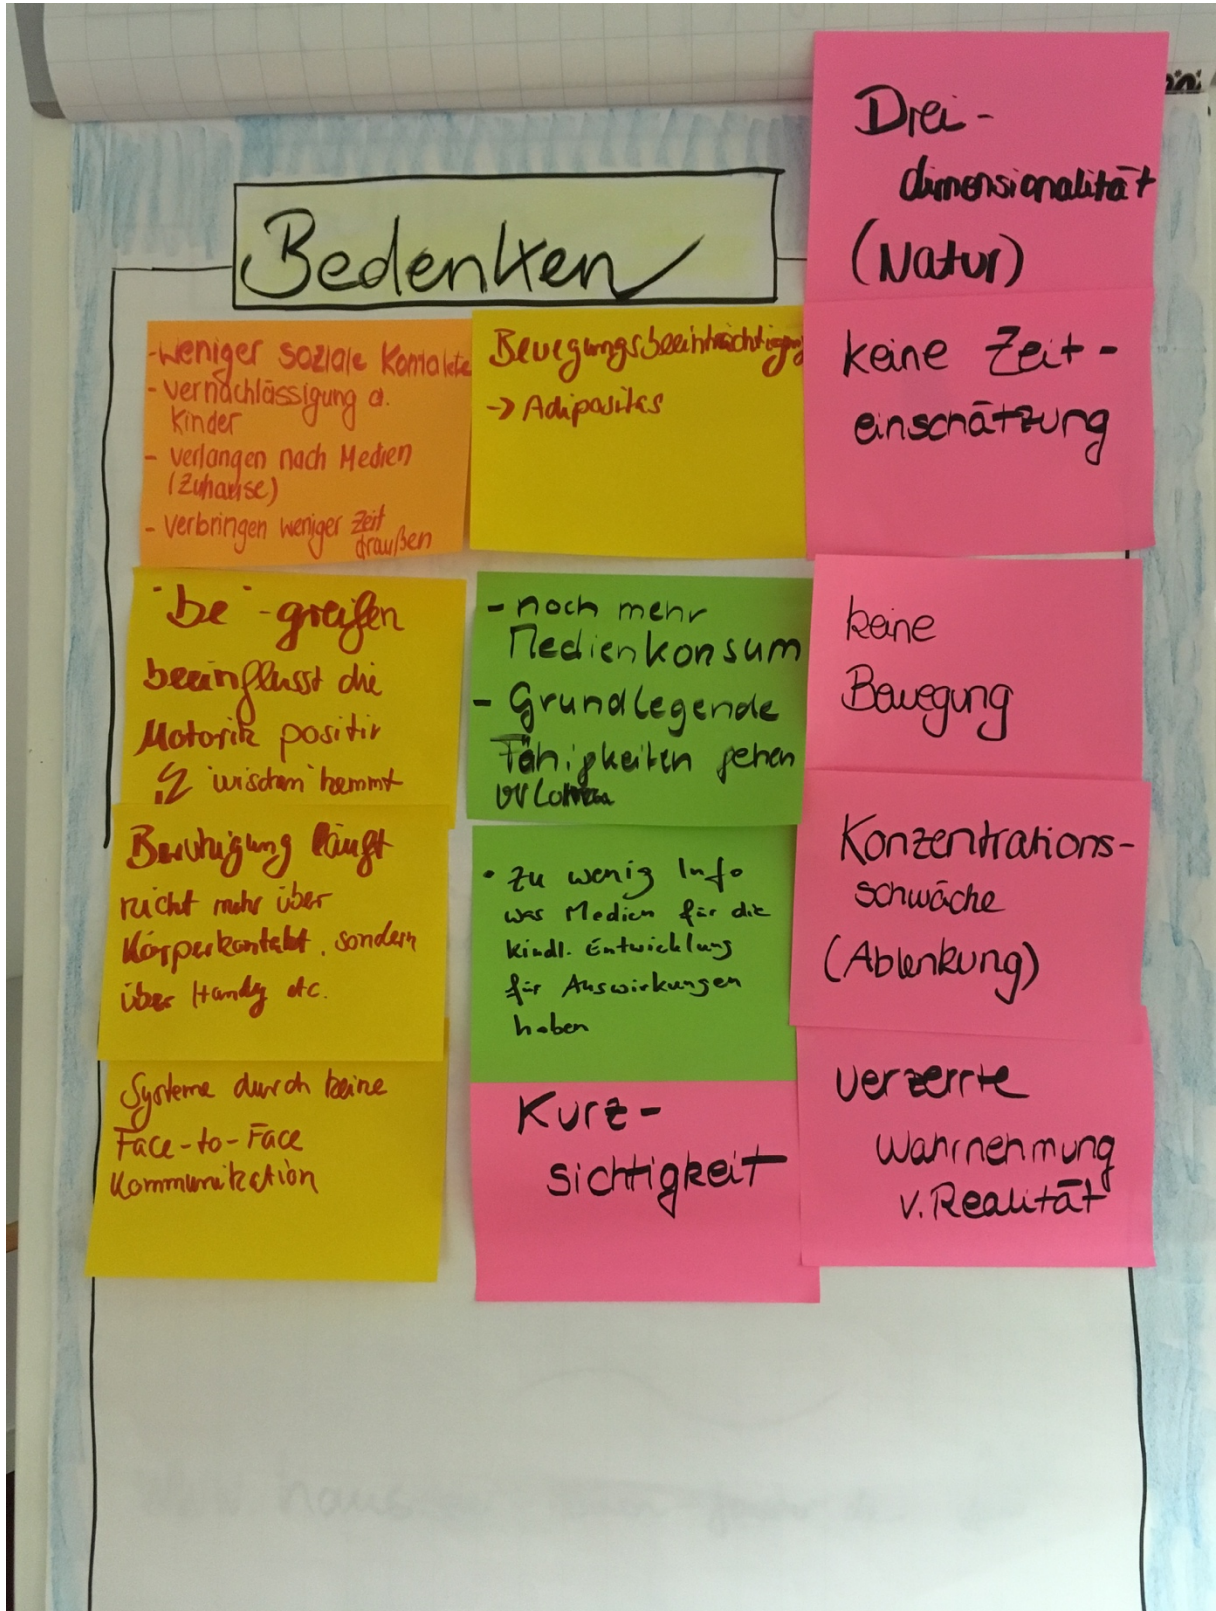 Bedenken
- weniger soziale Kontakte
- vernachlässigung d.
Kinder
- verlangen nach Medien
(Zuhause)
- verbringen weniger Zeit
draußen
"be"-greifen
beeinflusst die
Motorik positiv
"wischen" hemmt
Beruhigung läuft
nicht mehr über
Körperkontakt, sondern
über Handy etc.
Systeme durch keine
Face-to-Face
Kommunikation
Bewegungsbeeinträchtigung
-> Adipositas
- noch mehr
Medienkonsum
- Grundlegende
Fähigkeiten gehen
verloren
• zu wenig Info
was Medien für die
kindl. Entwicklung
für Auswirkungen
haben
Kurz-
sichtigkeit
Drei-
dimensionalität
(Natur)
keine Zeit-
einschätzung
keine
Bewegung
Konzentrations-
schwäche
(Ablenkung)
verzerrte
Wahrnehmung
v. Realität